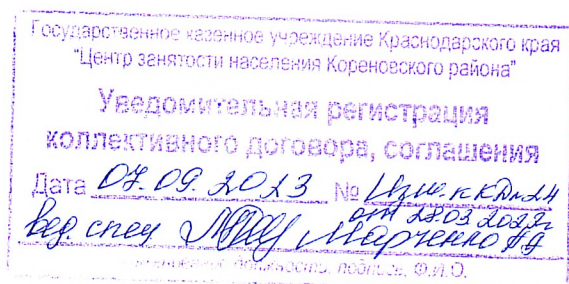 Государственное казенное учреждение Краснодарского края
"Центр занятости населения Кореновского района"
Уведомительная регистрация
коллективного договора, соглашения
Дата 07.09.2023 № Изм. к КД № 24
от 28.03.2022г
вед спец Марченко
должность, подпись, Ф.И.О.